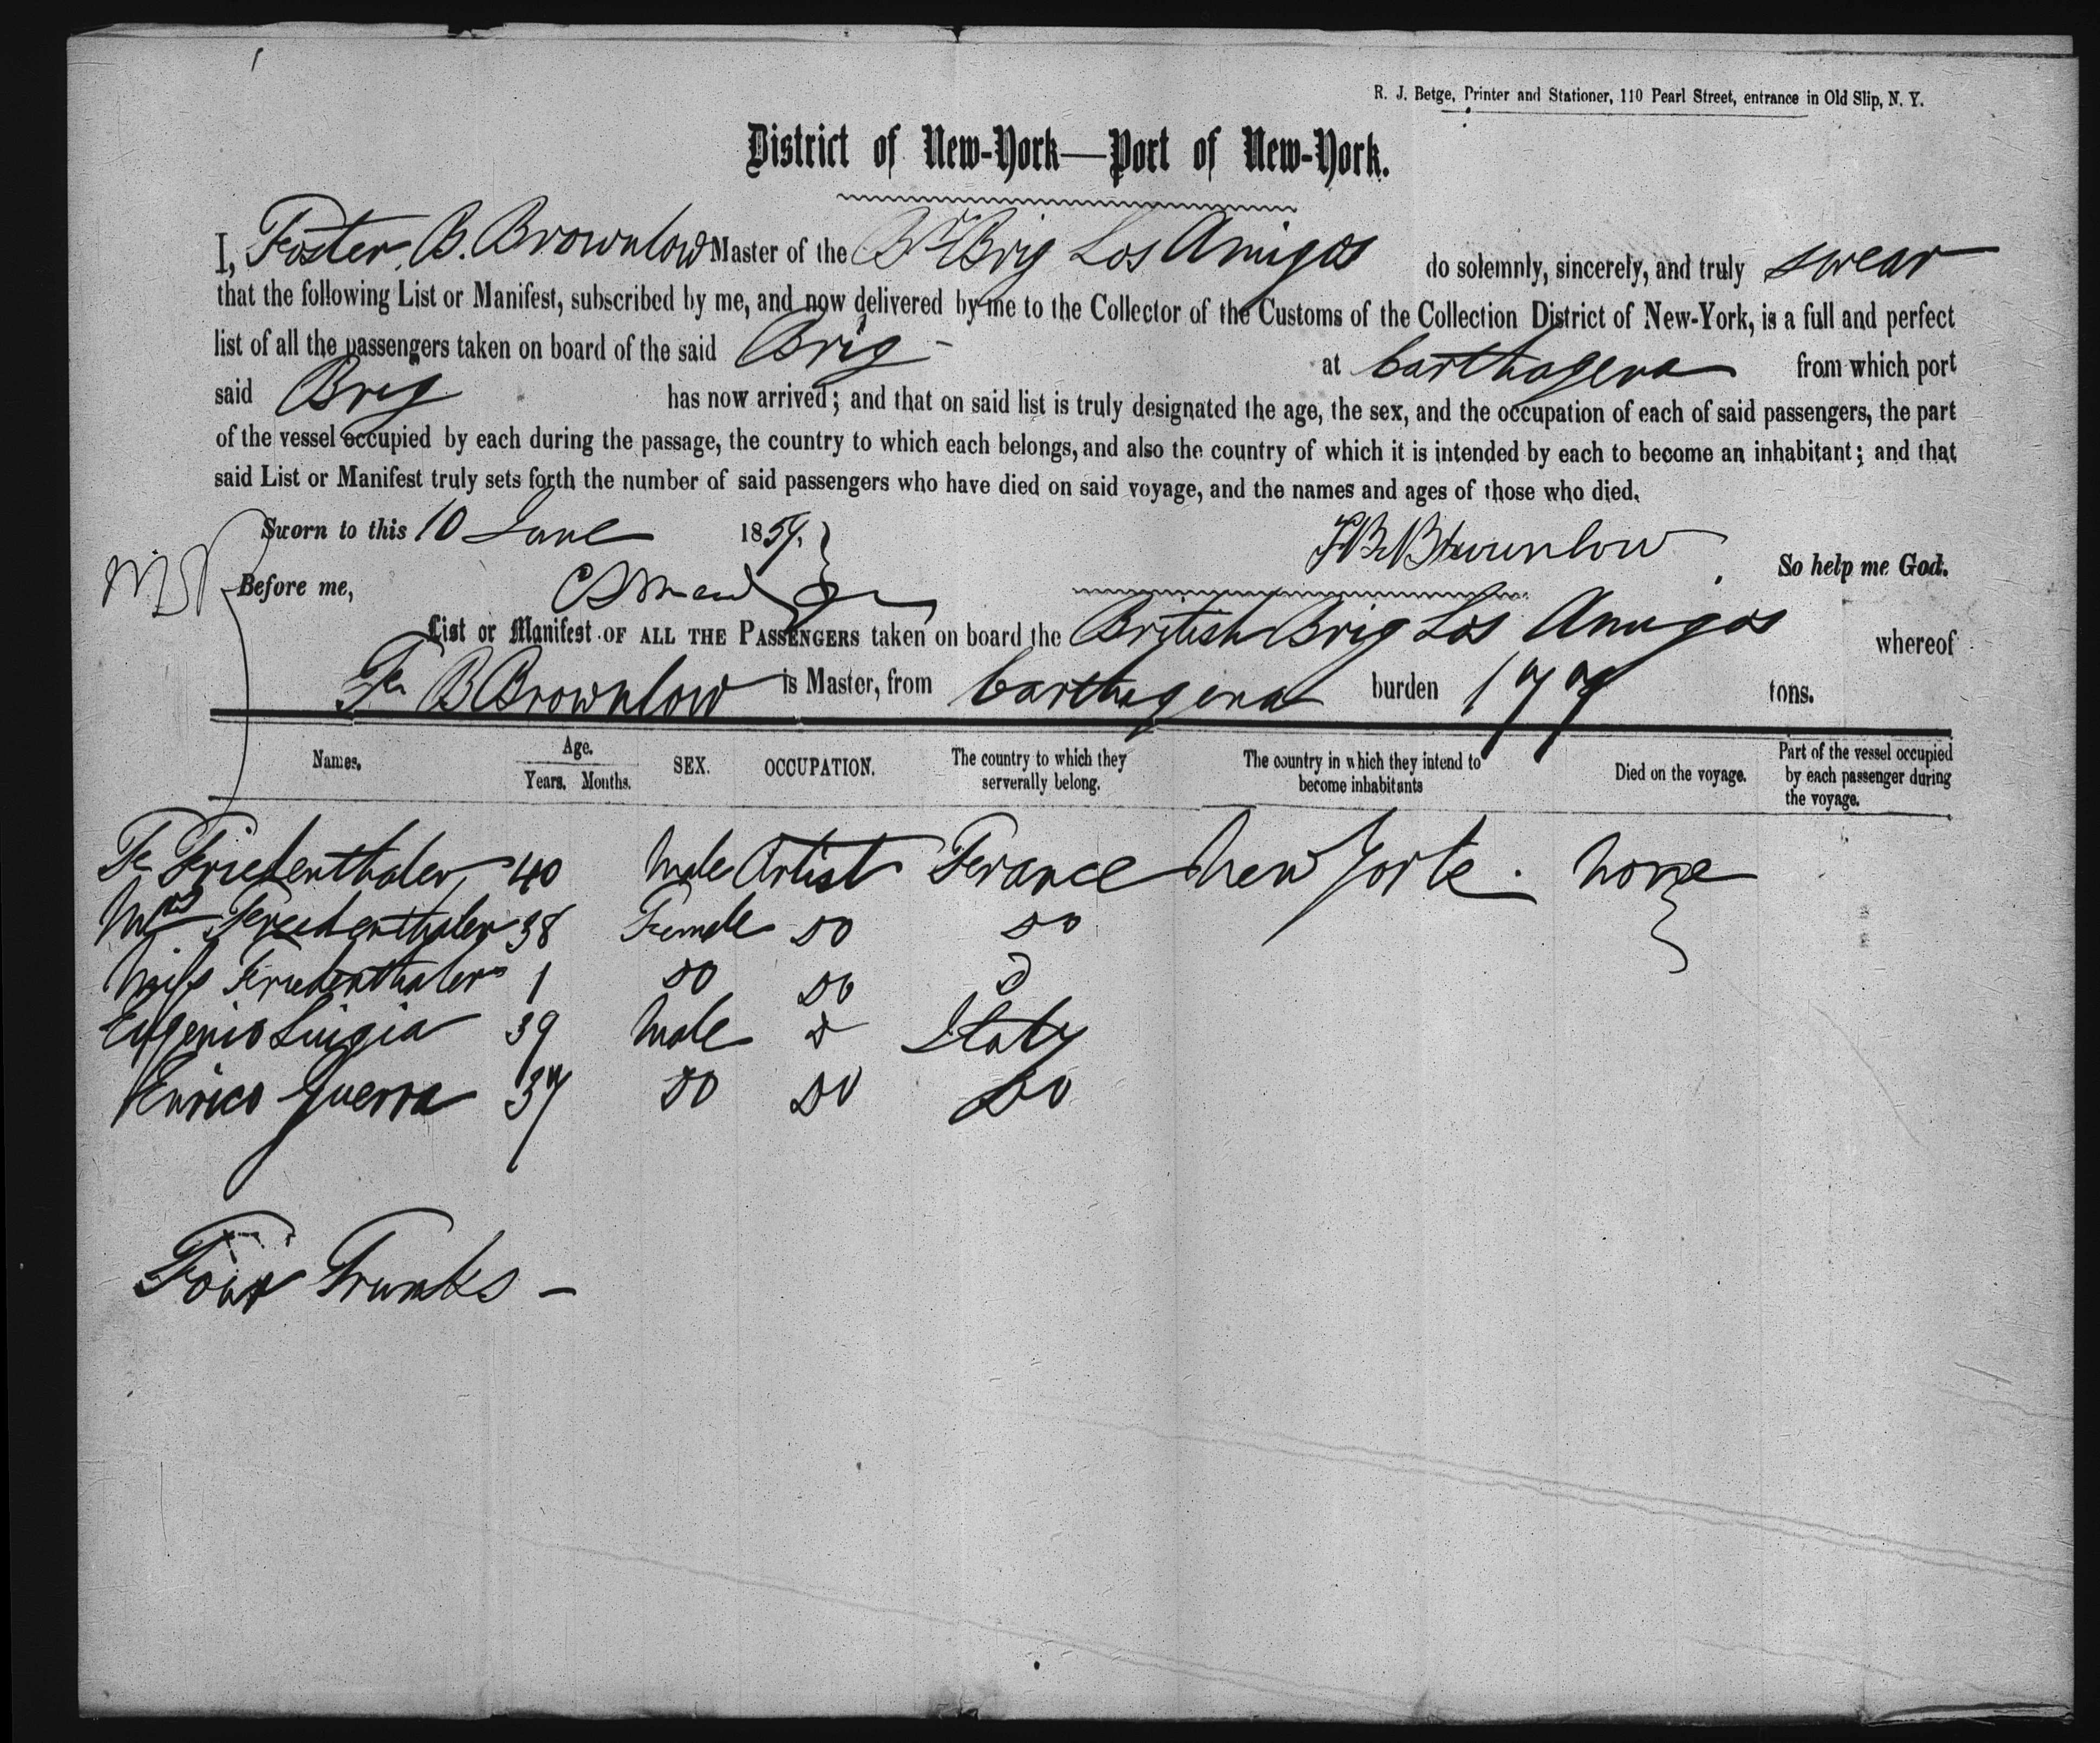 R. J. Betge, Printer and Stationer, 110 Pearl Street, entrance in Old Slip, N. Y.
District of New-York—Port of New-York.
I, Foster B. Brownlow Master of the Br Brig Los Amigos do solemnly, sincerely, and truly swear
that the following List or Manifest, subscribed by me, and now delivered by me to the Collector of the Customs of the Collection District of New-York, is a full and perfect
list of all the passengers taken on board of the said Brig - at Carthagena from which port
said Brig has now arrived; and that on said list is truly designated the age, the sex, and the occupation of each of said passengers, the part
of the vessel occupied by each during the passage, the country to which each belongs, and also the country of which it is intended by each to become an inhabitant; and that
said List or Manifest truly sets forth the number of said passengers who have died on said voyage, and the names and ages of those who died.
Sworn to this 10 June 1859. F B Brownlow So help me God.
Before me,
List or Manifest OF ALL THE PASSENGERS taken on board the British Brig Los Amigos whereof
F B Brownlow is Master, from Carthagena burden 177 tons.
Names. Age. Years. Months. SEX. OCCUPATION. The country to which they serverally belong. The country in which they intend to become inhabitants Died on the voyage. Part of the vessel occupied by each passenger during the voyage.
F Friedenthaler 40 Male Artist France New York. None
Mrs Friedenthaler 38 Female Do Do
Miss Friedenthaler 1 Do Do D
Eugenio Luigia 39 Male D Italy
Enrico Guerra 37 Do Do Do
Four Trunks -